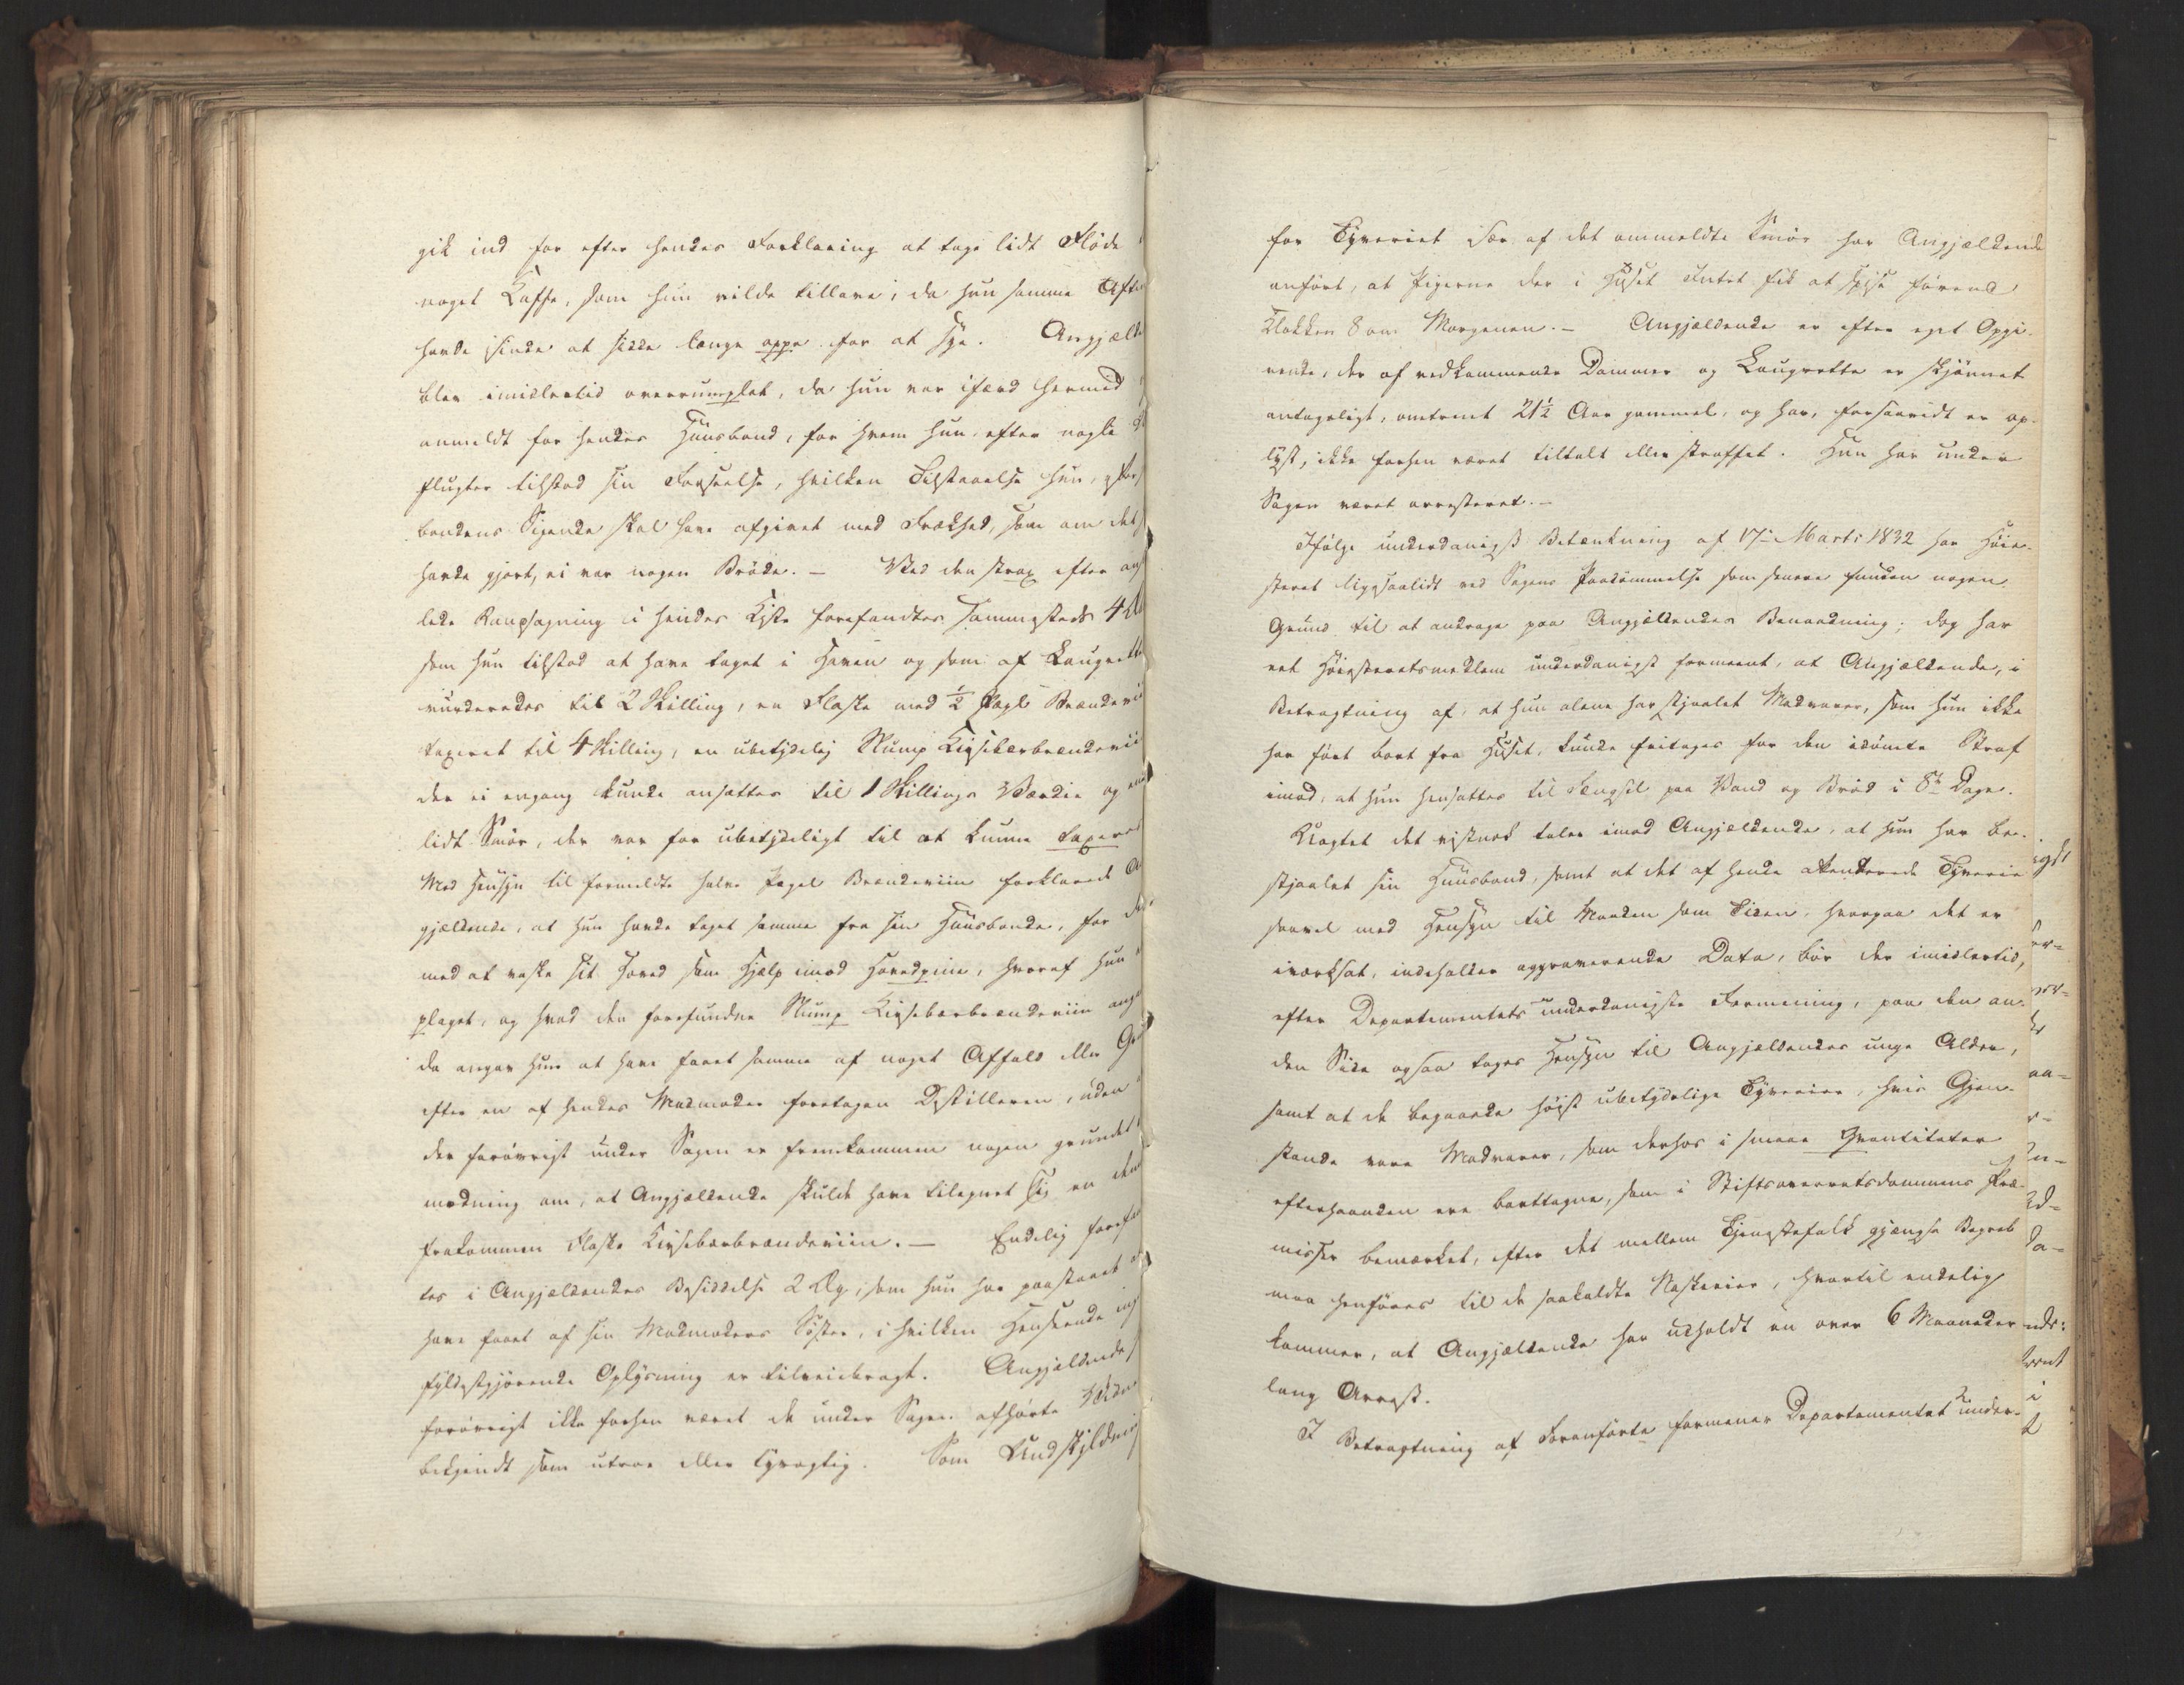 gik ind for efter hendes Forklaring at tage lidt Fløde
noget Kaffe, som hun vilde tillave, da hun samme Aften
havde isinde at sidde længe oppe for at sye. Angjælde
blev imidlertid overrumplet, da hun var ifærd hermed
anmeldt for hendes Huusbond, for hvem hun, efter nogle
flugter tilstod sin Forseelse, hvilken Tilstaaelse hun,
bondens Sigende skal have afgivet med Frækhed, som om det
havde gjort, ei var nogen Brøde. – Ved den strax efter
lede Ransagning i hendes Kiste forefandtes sammesteds 4
som hun tilstod at have taget i Haven og som af Laugrette
vurderedes til 2 Skilling, en Flaske med ½ Pægl Brændeviin
taxeret til 4 Skilling, en ubetydelig Slump Kirsebærbrændeviin
der ei engang kunde ansættes til 1 Skillings Værdie og
lidt Smør, der var for ubetydeligt til at kunne taxeres
Med Hensyn til formeldte halve Pægel Brændeviin forklarede An
gjældende, at hun havde taget samme fra sin Huusbonde, for
med at vaske sit Hoved som Hjelp imod Hovedpine, hvoraf hun
plaget, og hvad den forefundne Slump Kirsebærbrændeviin ang
da angav hun at have faaet samme af noget Affald eller
efter en af hendes Madmoder foretagen Destilleren, uden
der forøvrigt under Sagen er fremkommen nogen grundet
modning om, at Angjældende skulde have tilegnet sig en
frakommen Flaske Kirsebærbrændeviin. – Endelig forefand
tes i Angjældendes Besiddelse 2 Æg, som hun har paastaaet
have faaet af sin Madmoders Søster, i hvilken Henseende
fyldestgjørende Oplysning er tilveiebragt. Angjældende
forøvrigt ikke forhen været de under Sagen afhørte Vidner
bekjendt som utroe eller tyvagtig. Som Undskyldning
for Tyveriet især af det ommeldte Smør har Angjældende
anført, at Pigerne der i Huset Intet fik at spise førend
Klokken 8 om Morgenen. – Angjældende er efter eget Opgi-
vende, der af vedkommende Dommer og Laugrette er skjønnet
antageligt, omtrent 21½ Aar gammel, og har, forsaavidt er op-
lyst, ikke forhen været tiltalt eller straffet. Hun har under
Sagen været arresteret. –
Ifølge underdanigst Betænkning af 17de Marts 1832 har Høie-
steret ligesaalidt ved Sagens Paadømmelse som senere funden nogen
Grund til at andrage paa Angjældendes Benaadning; dog har
eet Høiesteretsmedlem underdanigst formeent, at Angjældende, i
Betragtning af, at hun alene har stjaalet Madvarer, som hun ikke
har ført bort fra Huset, kunde fritages for den idømte Straf
imod, at hun hensattes til Fængsel paa Vand og Brød i 8te Dage.
Uagtet det vistnok taler imod Angjældende, at hun har be-
stjaalet sin Huusbond, samt at det af hende attenterede Tyverie
saavel med Hensyn til Maaden som Tiden, hvorpaa det er
iværksat, indeholder aggraverende Data, bør der imidlertid,
efter Departementets underdanigste Formening, paa den an-
den Side ogsaa tages Hensyn til Angjældendes unge Alder,
samt at de begaaede høist ubetydelige Tyverier, hvis Gjen-
stande vare Madvarer, som derhos i smaae Qvantiteter
efterhaanden ere borttagne, som i Stiftsoverretsdommens Præ-
misser bemærket, efter det mellem Tjenestefolk gjængse Begreb
maa henføres til de saakaldte Naskerier, hvortil endelig
kommer, at Angjældende har udholdt en over 6 Maaneder
lang Arrest.
I Betragtning af Foranførte formener Departementet under-